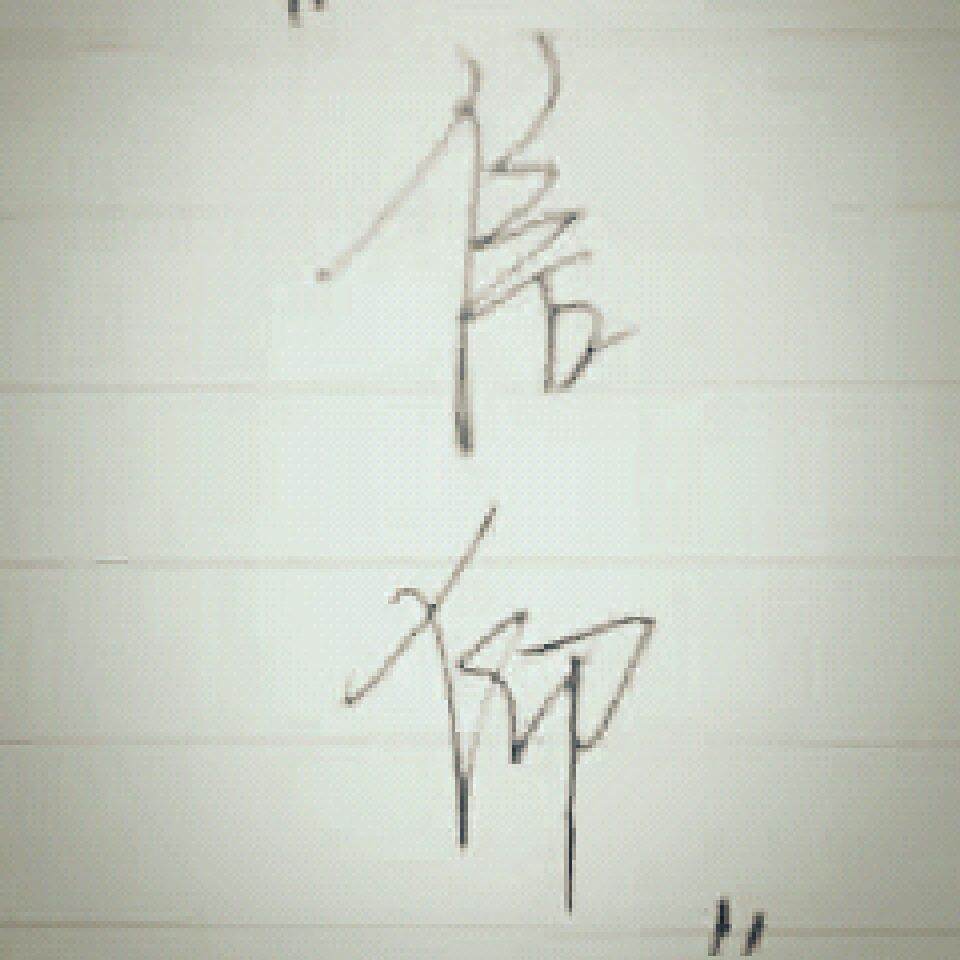 "信
仰"